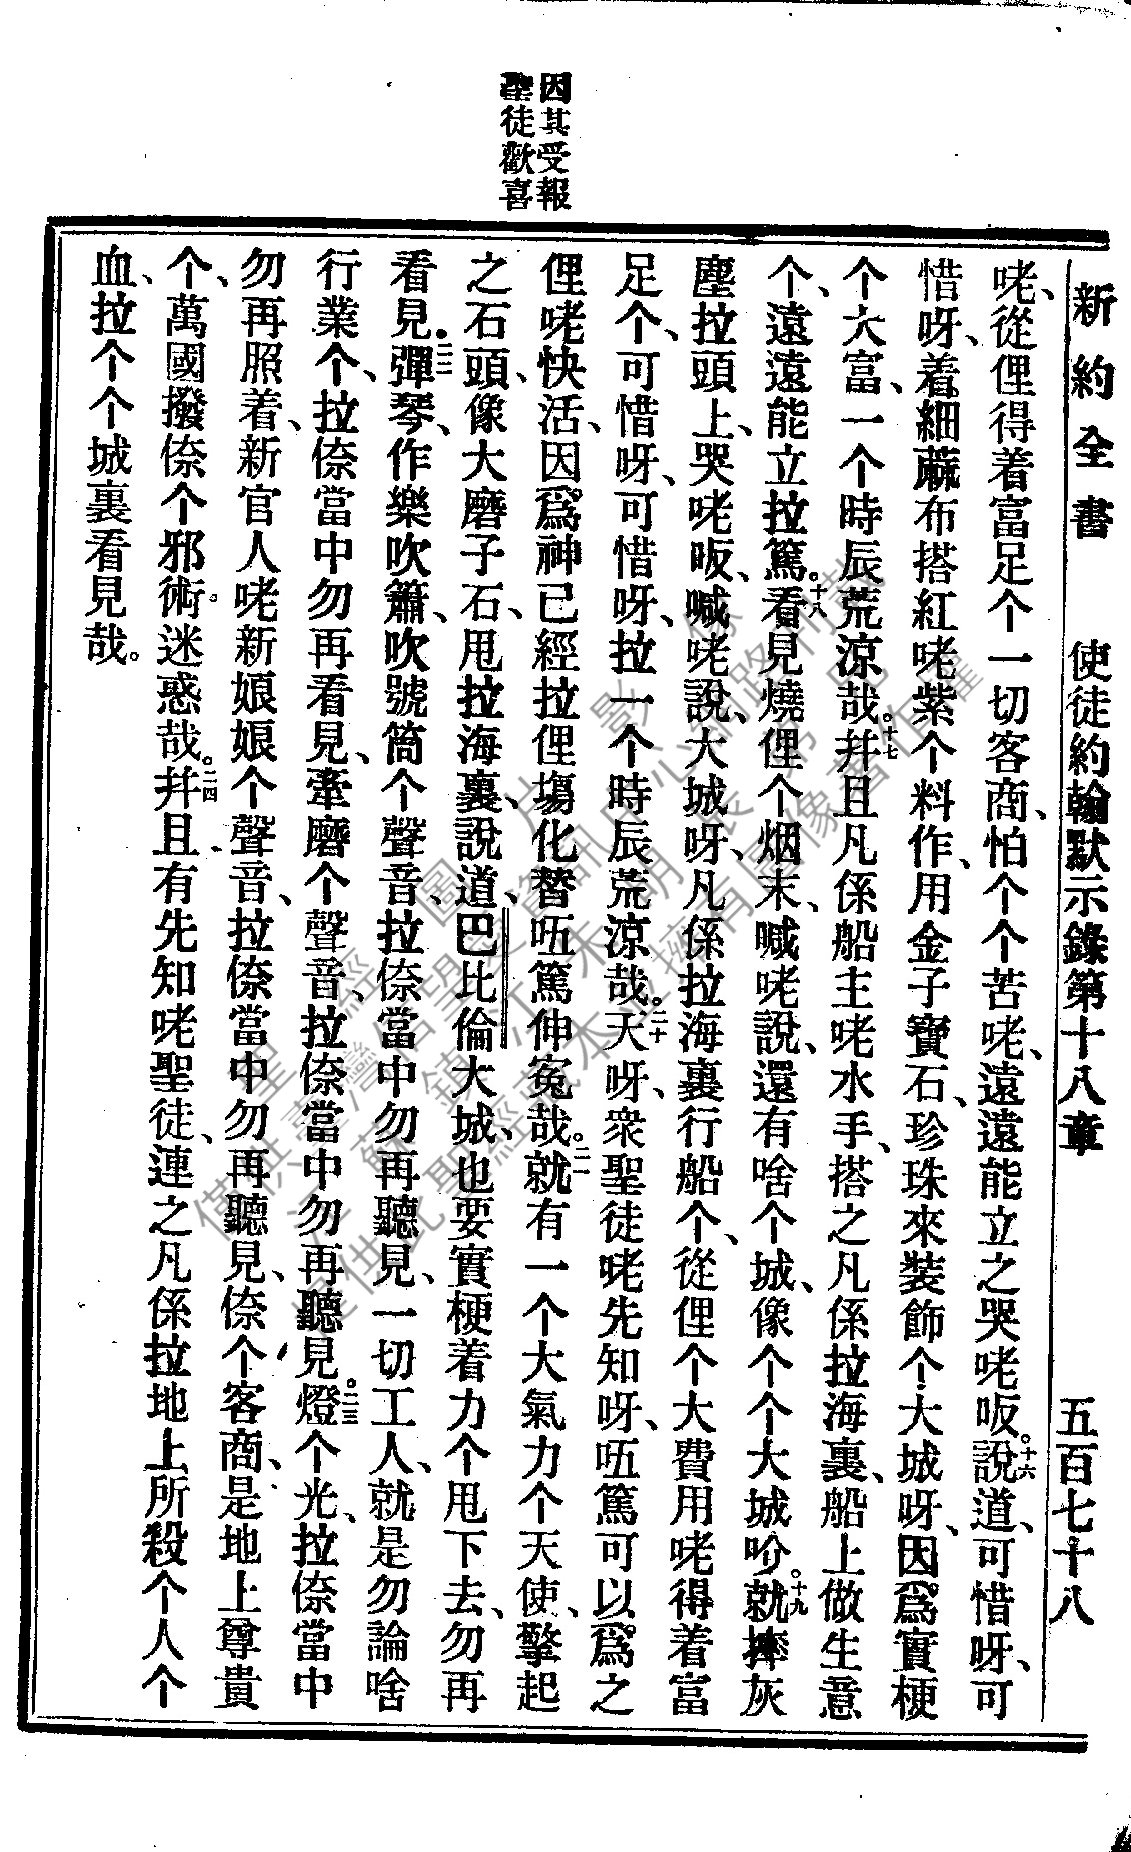 新約全書　使徒約翰默示錄第十八章　五百七十八
咾、從俚得着富足个一切客商、怕个个苦咾、遠遠能立之哭咾昄。十六說道、可惜呀、可
惜呀、着細蔴布搭紅咾紫个料作、用金子寶石、珍珠來装飾个大城呀、因爲實梗
个大富、一个時辰荒凉哉。十七幷且凡係船主咾水手、搭之凡係拉海裏、船上做生意
个、遠遠能立拉篤。十八看見燒俚个烟末、喊咾說、還有啥个城、像个个大城吤。十九就摔灰
塵拉頭上、哭咾昄、喊咾說、大城呀、凡係拉海裏行船个、從俚个大費用咾得着富
足个、可惜呀、可惜呀、拉一个時辰荒凉哉。二十天呀、衆聖徒咾先知呀、㕶篤可以爲之
俚咾快活、因爲神已經拉俚塲化替㕶篤伸寃哉。二一就有一个大氣力个天使、擎起
之石頭、像大磨子石、甩拉海裏、說道、巴比倫大城、也要實梗着力个甩下去、勿再
看見。二二彈琴、作樂吹簫、吹號筒个聲音、拉倷當中勿再聽見、一切工人、就是勿論啥
行業个、拉倷當中勿再看見、牽磨个聲音、拉倷當中勿再聽見。二三燈个光、拉倷當中
勿再照着、新官人咾新娘娘个聲音、拉倷當中勿再聽見、倷个客商、是地上尊貴
个、萬國撥倷个邪術迷惑哉。二四幷且有先知咾聖徒、連之凡係拉地上所殺个人个
血、拉个个城裏看見哉。
因其受報
聖徒歡喜